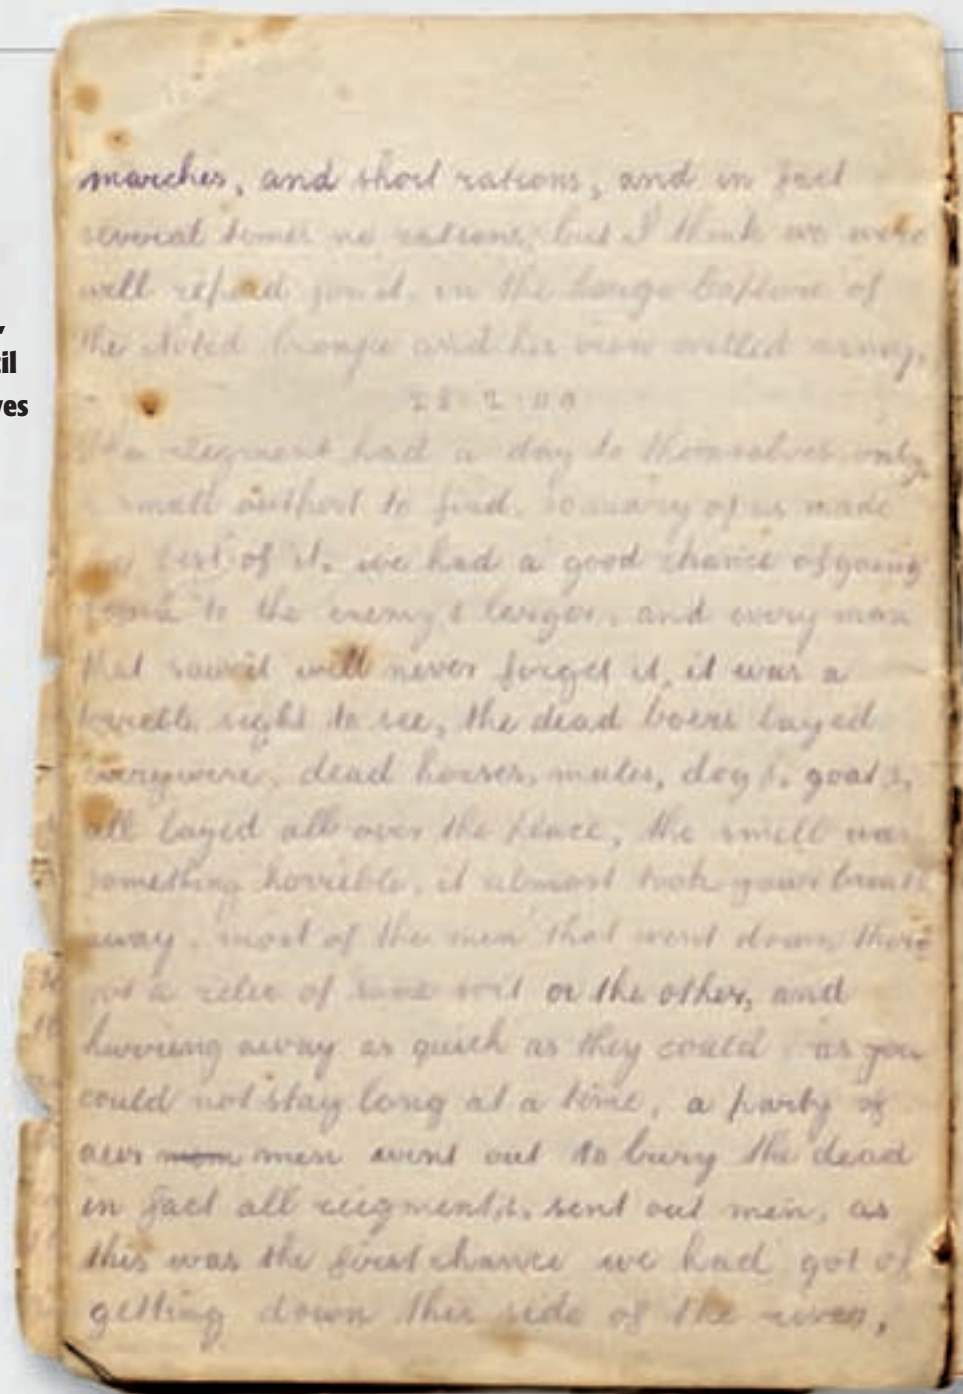 il
ves
marches, and short rations, and in fact
several times no rations, but I think we were
well repaid for it, in the large Capture of
the Noted Cronje and his iron willed army.
28.2.00
The regiment had a day to themselves only
small outpost to find, so many of us made
best of it. we had a good chance of going
to the enemy,s larger, and every man
that saw it will never forget it, it was a
horreble sight to see, the dead boers layed
everywere, dead horses, mules, dog,s, goat,s,
all layed all over the place, the smell was
something horreble, it almost took your breath
away. most of the men that went down there
got a relec of some sort or the other, and
hurring away as quick as they could as you
could not stay long at a time, a party of
our men went out to bury the dead
in fact all regment,s, sent out men, as
this was the first chance we had got of
getting down this side of the river,